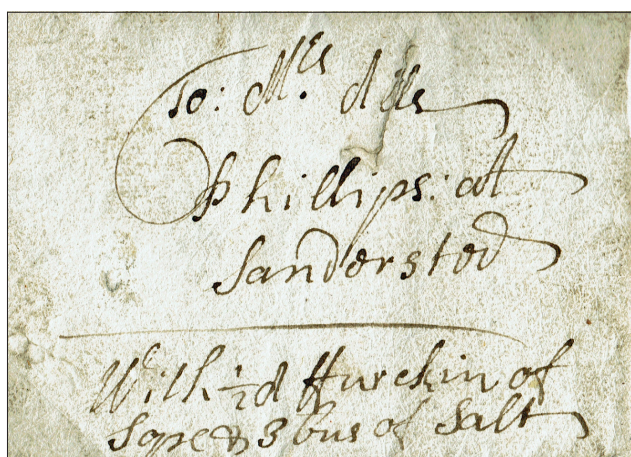 To: Mrs
Phillips: at
Sandersted
With ½ d ffurckin of
Sope & 3 bus of Salt